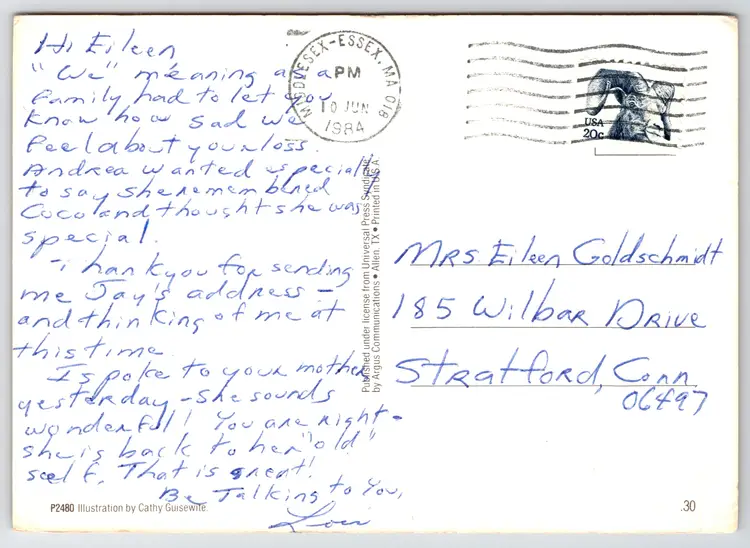 Hi Eileen
"We" meaning as a
family had to let you
know how sad we
feel about your loss.
Andrea wanted especially
to say she remembered
Coco and thought she was
special.
Thank you for sending
me Jay's address –
and thinking of me at
this time.
I spoke to your mother
yesterday – she sounds
wonderful! You are right –
she is back to her "old"
self. That is great!
Be Talking to You,
Lori
P2480 Illustration by Cathy Guisewite
Published under license from Universal Press Syndicate
by Argus Communications • Allen, TX • Printed in U.S.A.
MIDDLESEX-ESSEX, MA 018
PM
10 JUN
1984
USA
20c
Mrs Eileen Goldschmidt
185 Wilbar Drive
Stratford, Conn
06497
.30